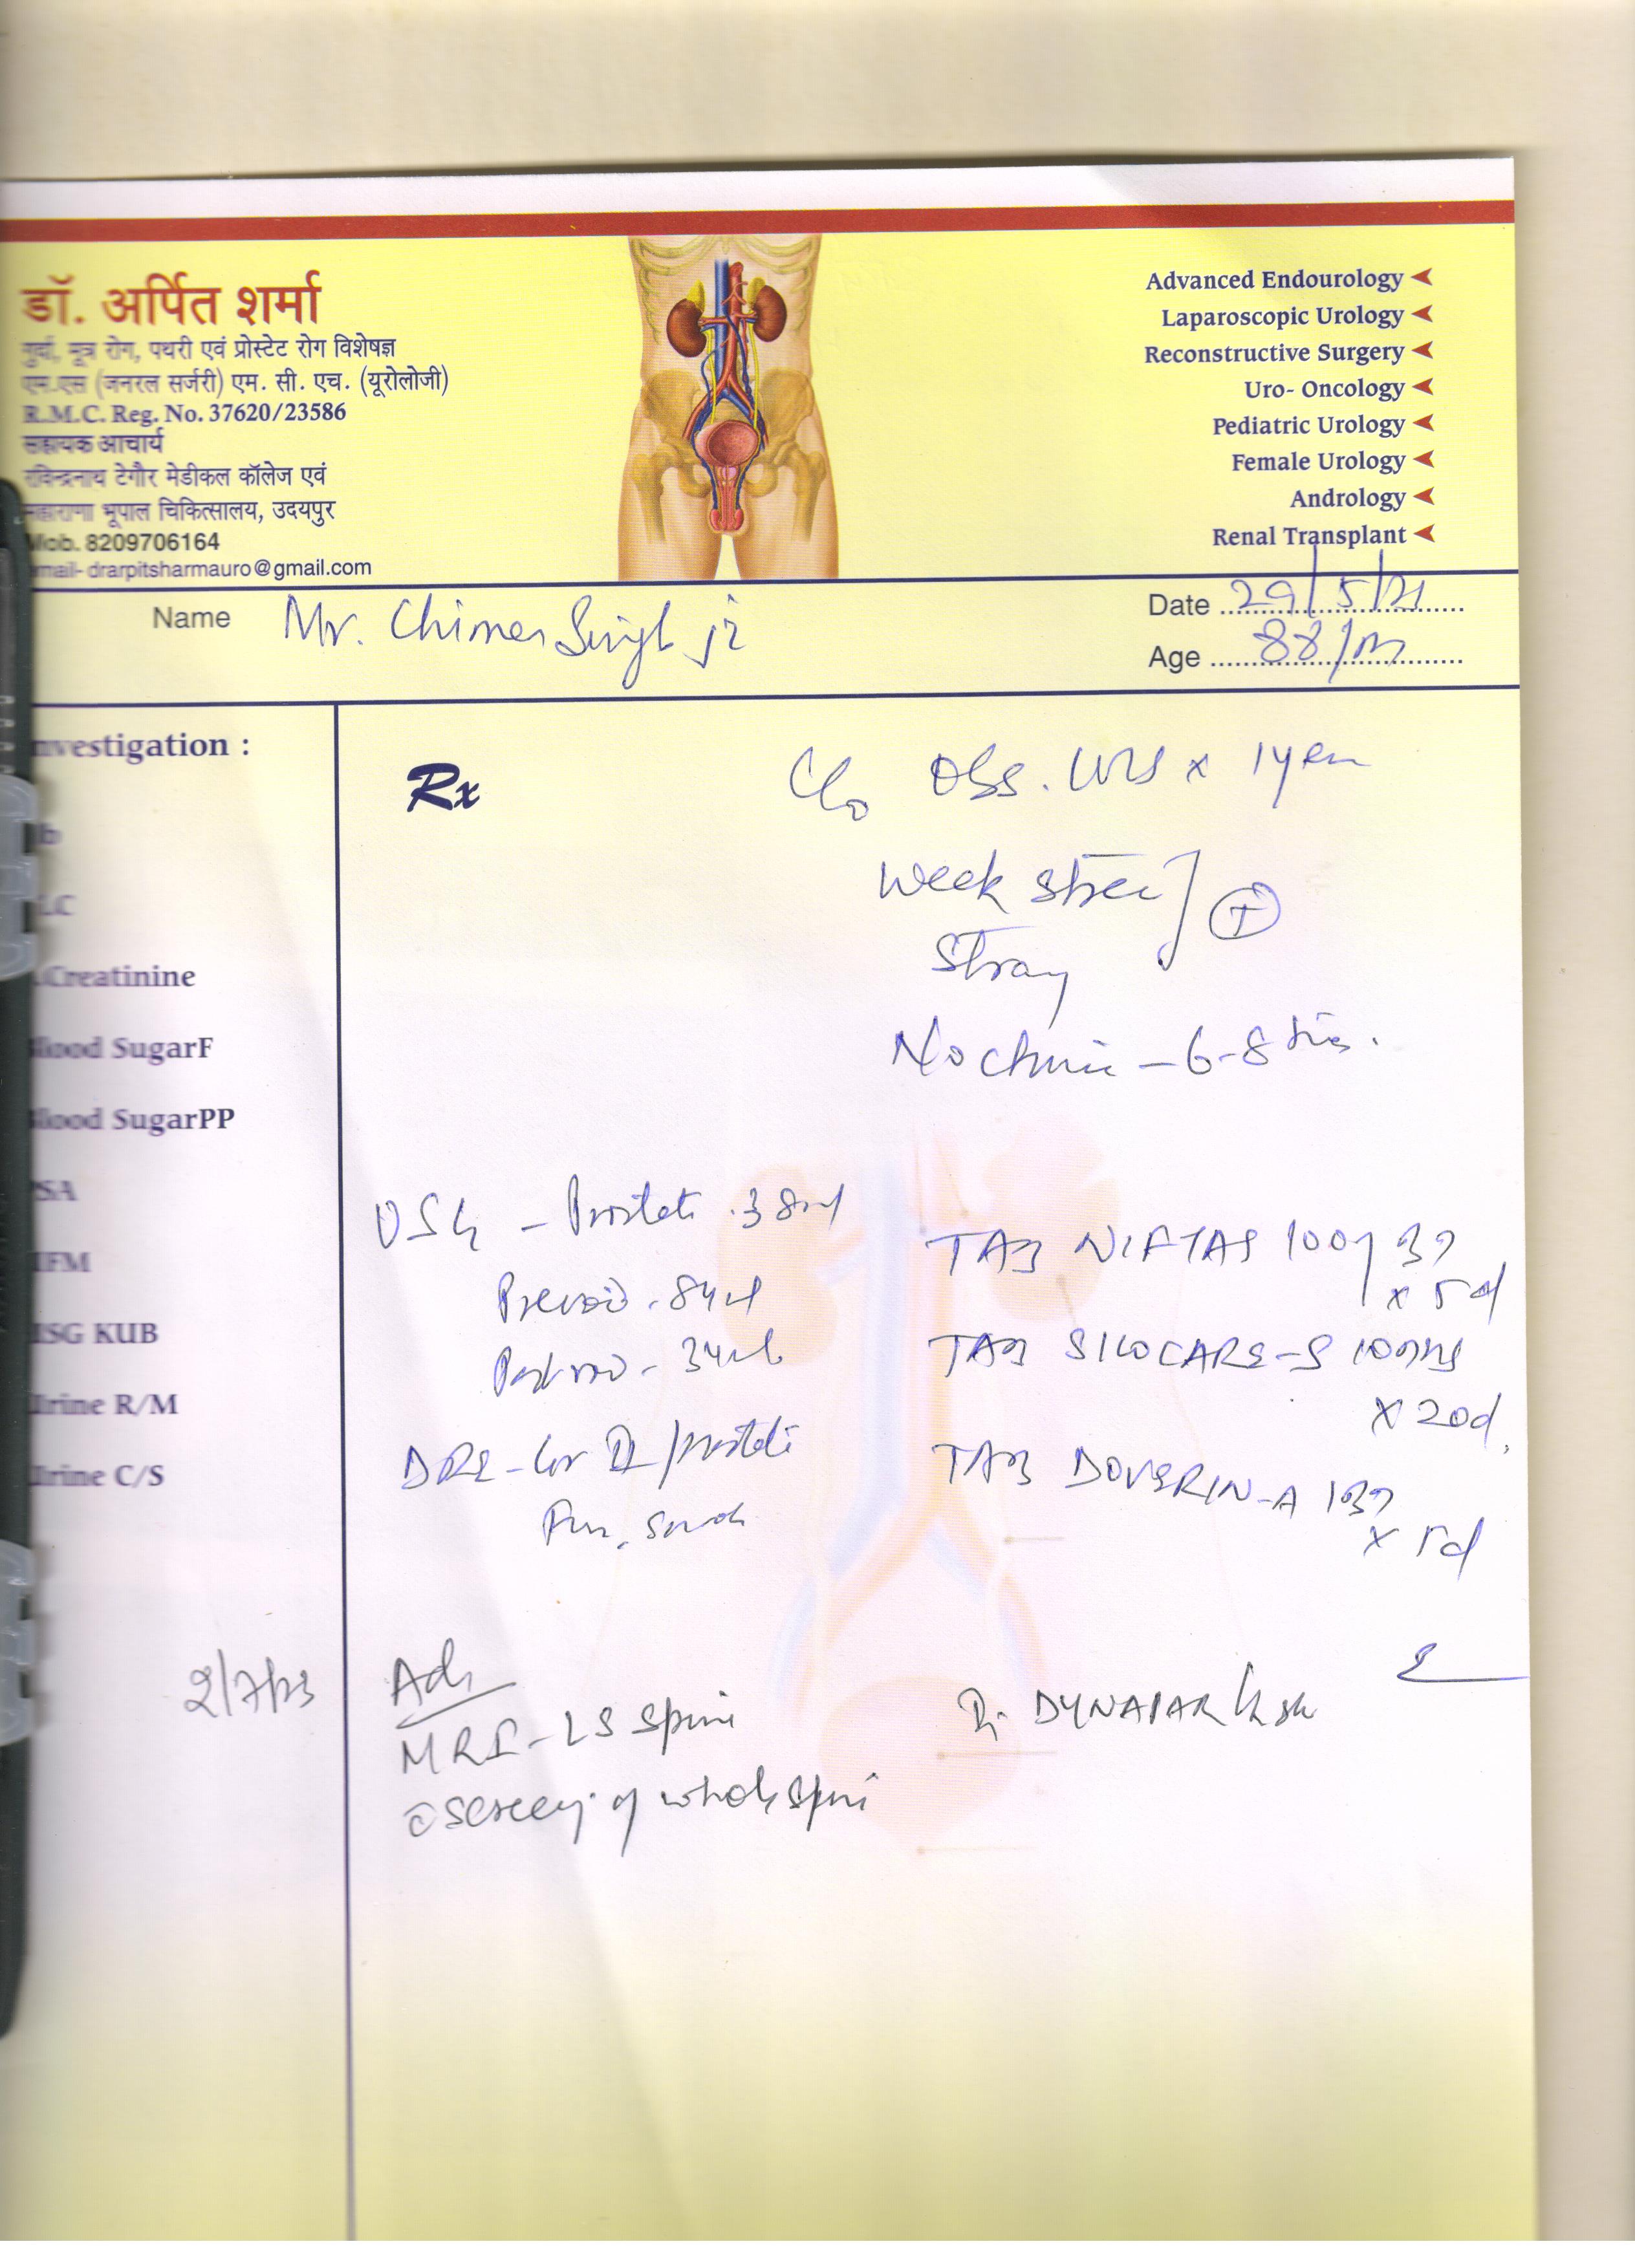 डॉ. अर्पित शर्मा
गुर्दा, मूत्र रोग, पथरी एवं प्रोस्टेट रोग विशेषज्ञ
एम.एस (जनरल सर्जरी) एम. सी. एच. (यूरोलोजी)
R.M.C. Reg. No. 37620/23586
सहायक आचार्य
रविन्द्रनाथ टेगौर मेडीकल कॉलेज एवं
महाराणा भूपाल चिकित्सालय, उदयपुर
Mob. 8209706164
email- drarpitsharmauro@gmail.com
Advanced Endourology
Laparoscopic Urology
Reconstructive Surgery
Uro- Oncology
Pediatric Urology
Female Urology
Andrology
Renal Transplant
Name Mr. Singh ji
Date 29/5/21
Age 88/m
nvestigation :
Rx
C/o Obs. LUTS x 1 year
b
Week
LC
Creatinine
Nocturia - 6-8
Blood SugarF
Blood SugarPP
SA
USG - Prostate 38ml
Prevoid - 84ml
TAB NIFTAS 100
x 5d
FM
SG KUB
Postvoid - 34ml
TAB SILOCARE-S
x 20d
Urine R/M
DRE - Gr II / prostate
TAB DOVERIN-A
x 5d
Urine C/S
2/7/23
Adv
MRI - LS spine
c screening of whole spine
DYNAPAR